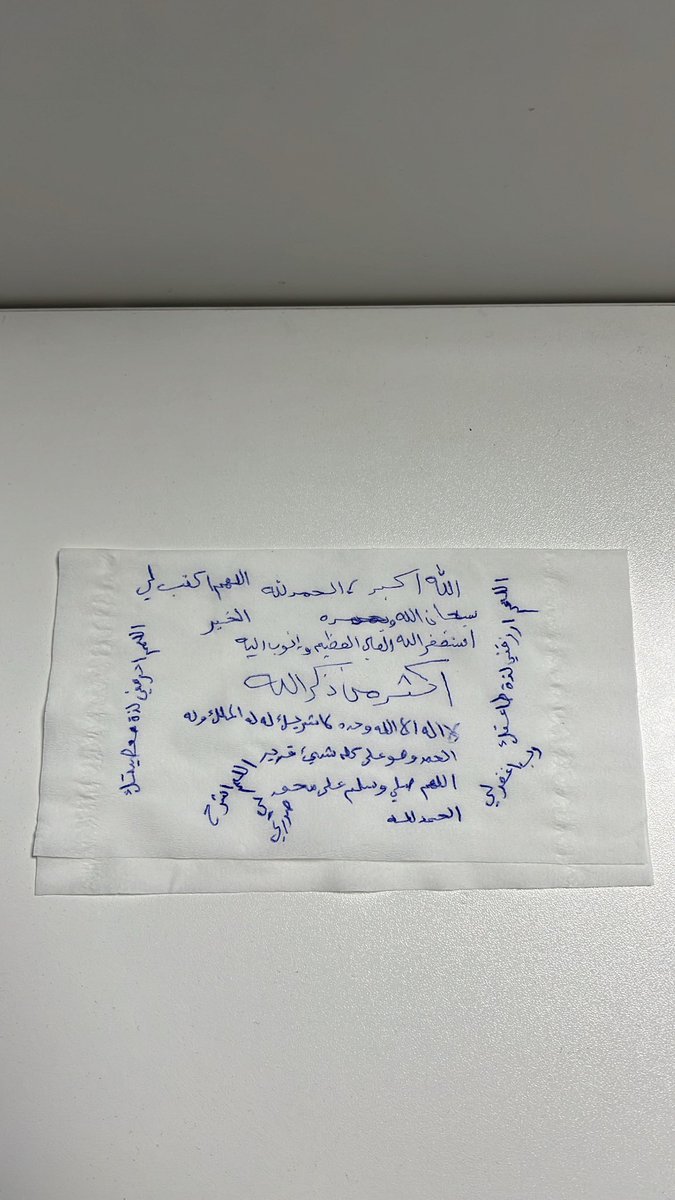 الله أكبر ، الحمد لله
اللهم اكتب لي
الخير
سبحان الله وبحمده
استغفر الله العلي العظيم واتوب اليه
اكثر من ذكر الله
لا اله الا الله وحده لا شريك له له الملك وله
الحمد وهو على كل شيئ قدير
اللهم صلي وسلم على محمد
الحمد لله
اللهم اشرح
لي صدري
اللهم ارزقني لذة طاعتك
رب اغفر لي
اللهم احرمني لذة معصيتك